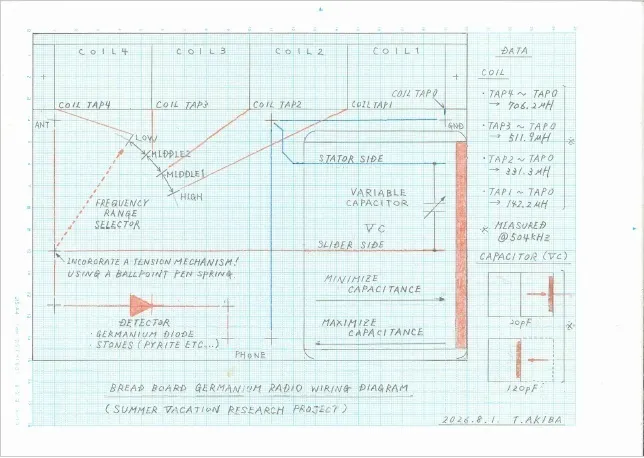 COIL4 COIL3 COIL2 COIL1
DATA
COIL
COIL TAP0
COIL TAP4 COIL TAP3 COIL TAP2 COIL TAP1
・TAP4 ~ TAP0
→ 706.2μH
・TAP3 ~ TAP0
→ 511.9μH
・TAP2 ~ TAP0
→ 331.3μH
・TAP1 ~ TAP0
→ 142.2μH
※ MEASURED
@504kHz
ANT
GND
LOW
MIDDLE2
MIDDLE1
HIGH
FREQUENCY
RANGE
SELECTOR
STATOR SIDE
VARIABLE
CAPACITOR
VC
SLIDER SIDE
INCORORATE A TENSION MECHANISM!
USING A BALLPOINT PEN SPRING
MINIMIZE
CAPACITANCE
MAXIMIZE
CAPACITANCE
CAPACITOR (VC)
20pF
※
120pF
DETECTOR
・GERMANIUM DIODE
・STONES (PYRITE ETC...)
PHONE
BREAD BOARD GERMANIUM RADIO WIRING DIAGRAM
(SUMMER VACATION RESEARCH PROJECT)
2026.8.1. T.AKIBA